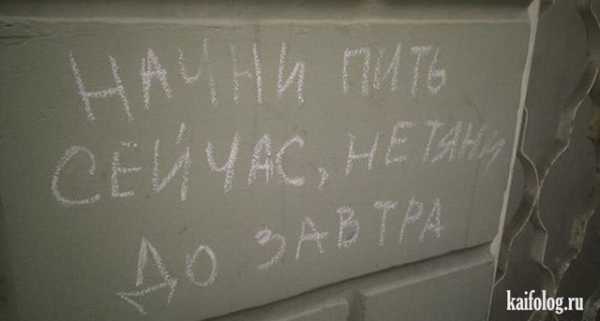 НАЧНИ ПИТЬ
СЕЙЧАС, НЕ ТЯНИ
ДО ЗАВТРА
kaifolog.ru